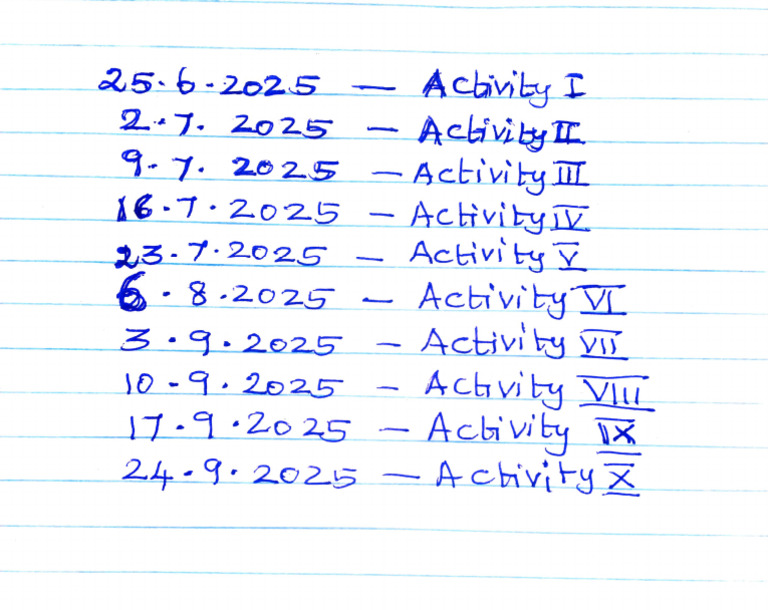 25.6.2025 — Activity I
2.7.2025 — Activity II
9.7.2025 — Activity III
16.7.2025 — Activity IV
23.7.2025 — Activity V
6.8.2025 — Activity VI
3.9.2025 — Activity VII
10-9.2025 — Activity VIII
17.9.2025 — Activity IX
24.9.2025 — Activity X